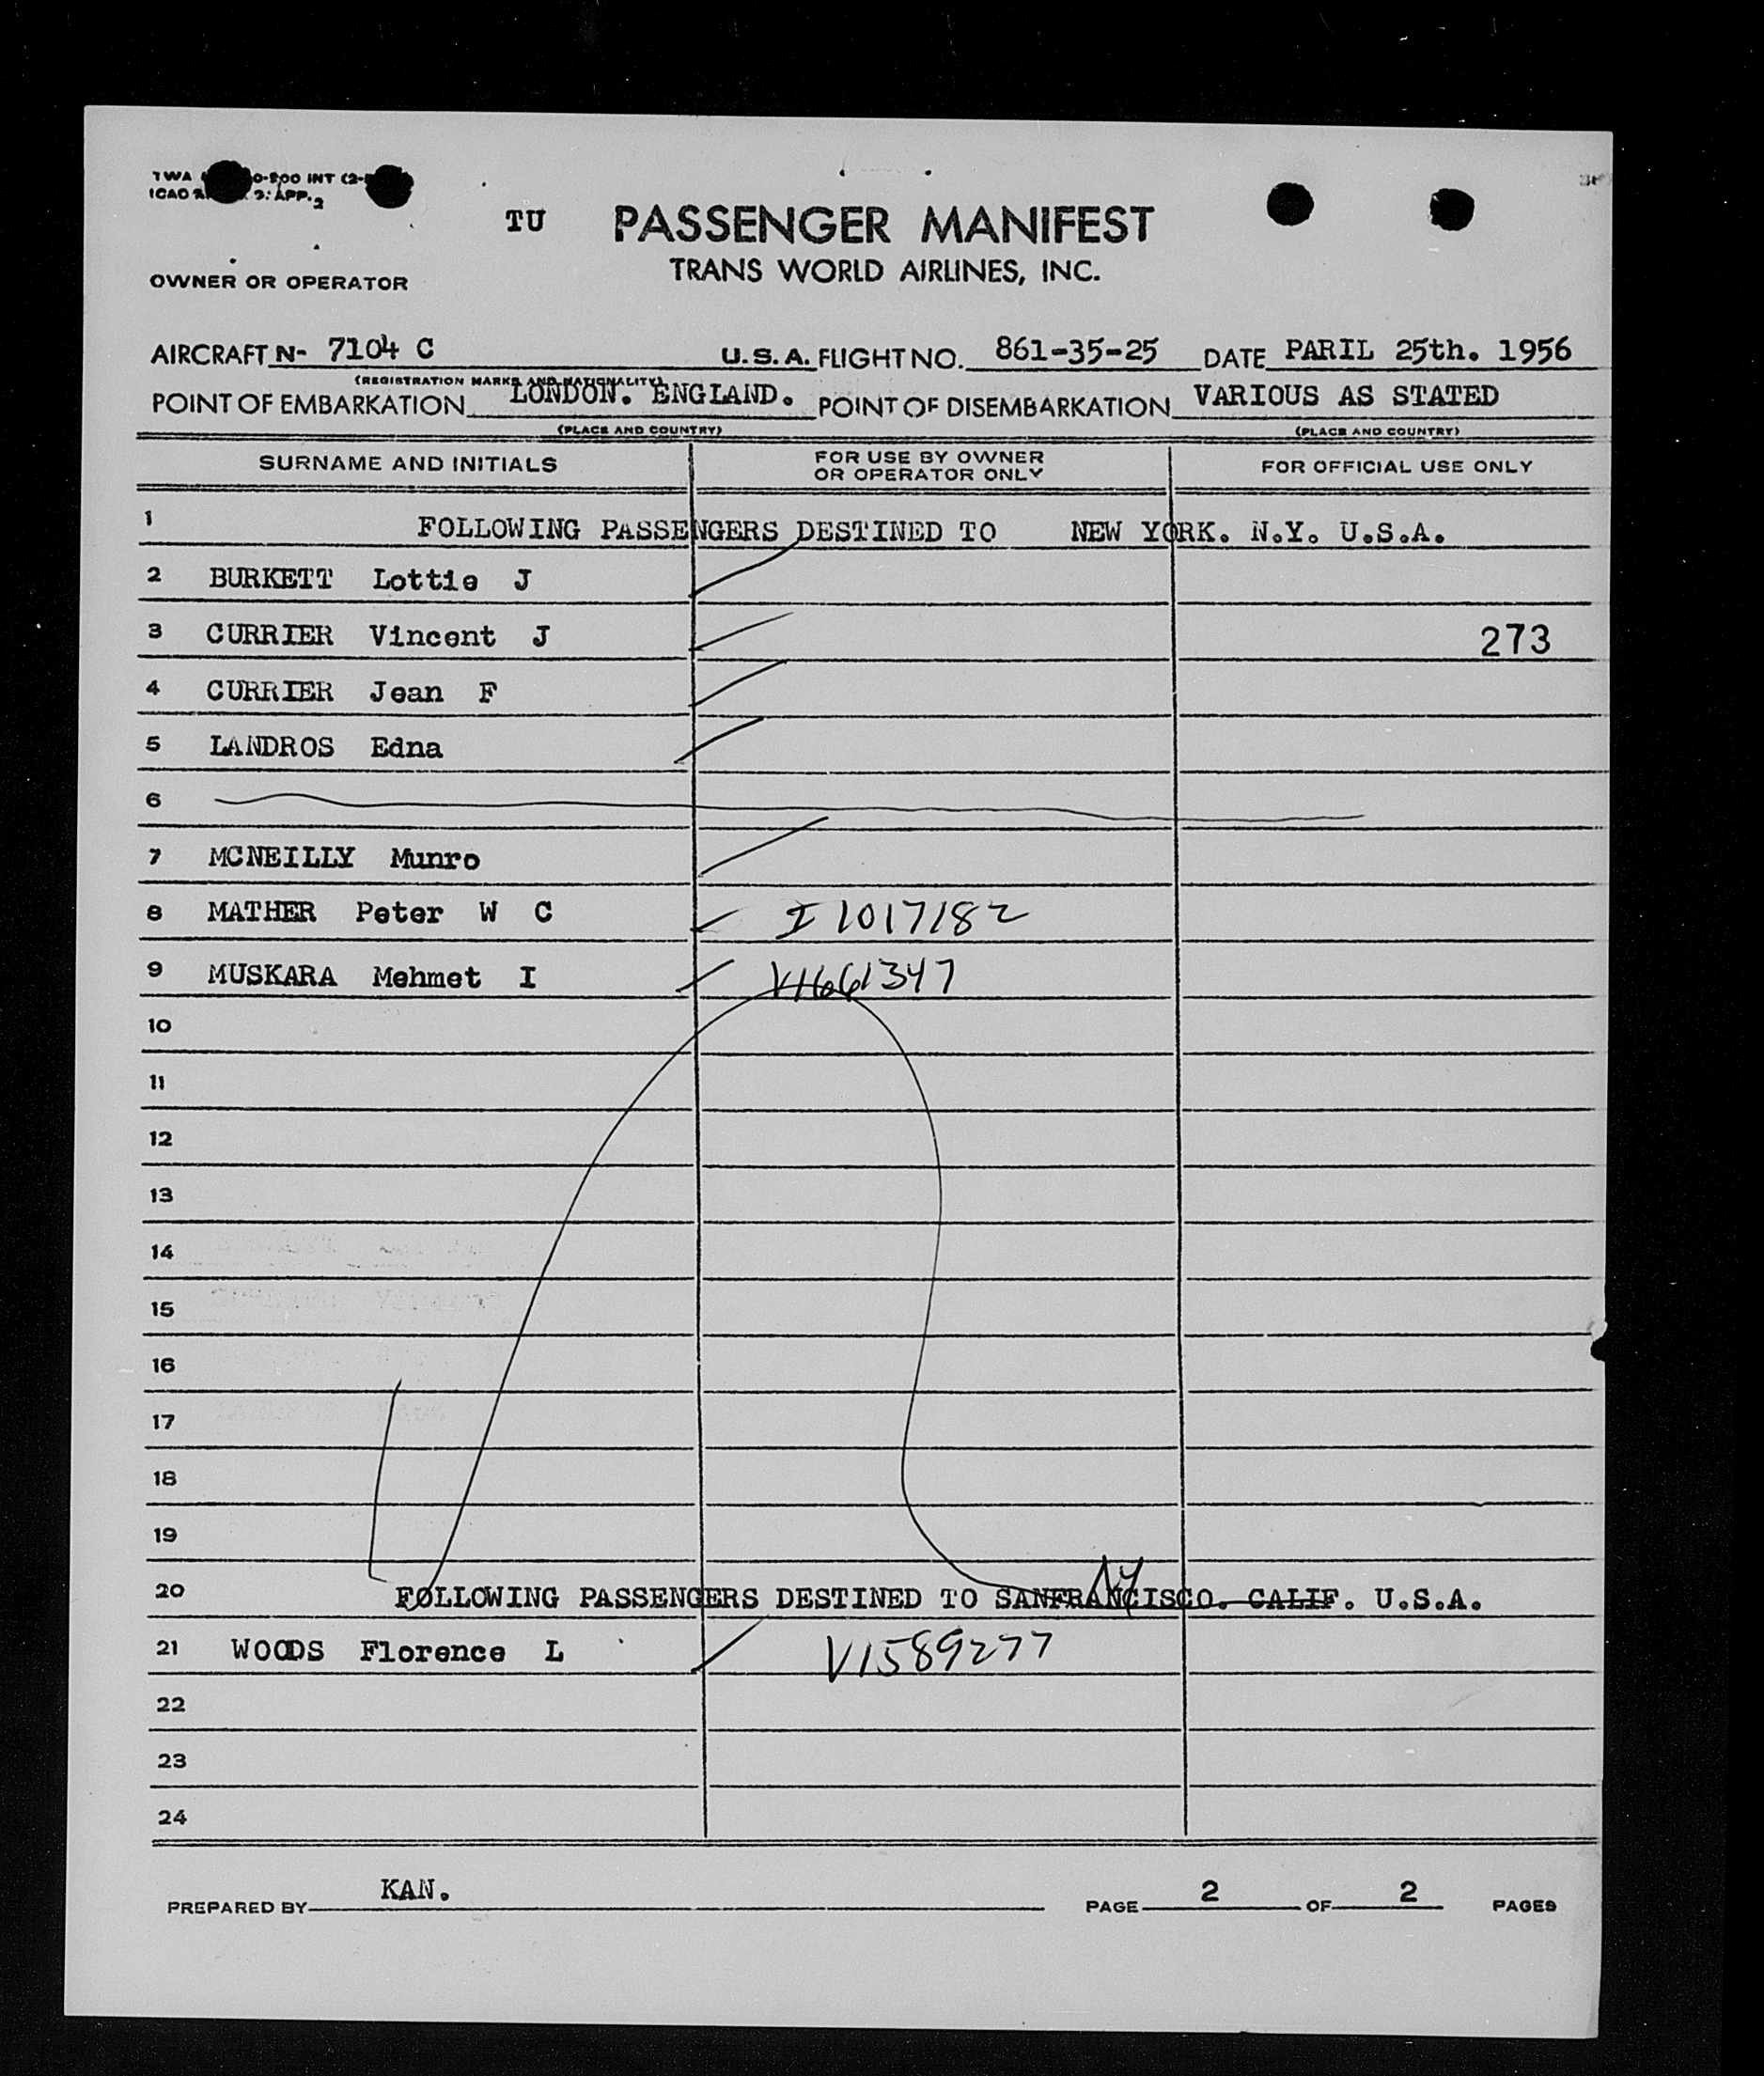 TWA 0-800 INT (2-
ICAO APP. 2
TU PASSENGER MANIFEST
TRANS WORLD AIRLINES, INC.
OWNER OR OPERATOR
AIRCRAFT N- 7104 C U.S.A. FLIGHT NO. 861-35-25 DATE PARIL 25th. 1956
(REGISTRATION MARKS AND NATIONALITY)
POINT OF EMBARKATION LONDON. ENGLAND. POINT OF DISEMBARKATION VARIOUS AS STATED
(PLACE AND COUNTRY) (PLACE AND COUNTRY)
SURNAME AND INITIALS FOR USE BY OWNER OR OPERATOR ONLY FOR OFFICIAL USE ONLY
1 FOLLOWING PASSENGERS DESTINED TO NEW YORK. N.Y. U.S.A.
2 BURKETT Lottie J
3 CURRIER Vincent J 273
4 CURRIER Jean F
5 LANDROS Edna
6
7 MCNEILLY Munro
8 MATHER Peter W C I 1017182
9 MUSKARA Mehmet I V1661347
10
11
12
13
14
15
16
17
18
19
20 FOLLOWING PASSENGERS DESTINED TO SANFRANCISCO. CALIF. U.S.A. NY
21 WOODS Florence L V1589277
22
23
24
PREPARED BY KAN. PAGE 2 OF 2 PAGES